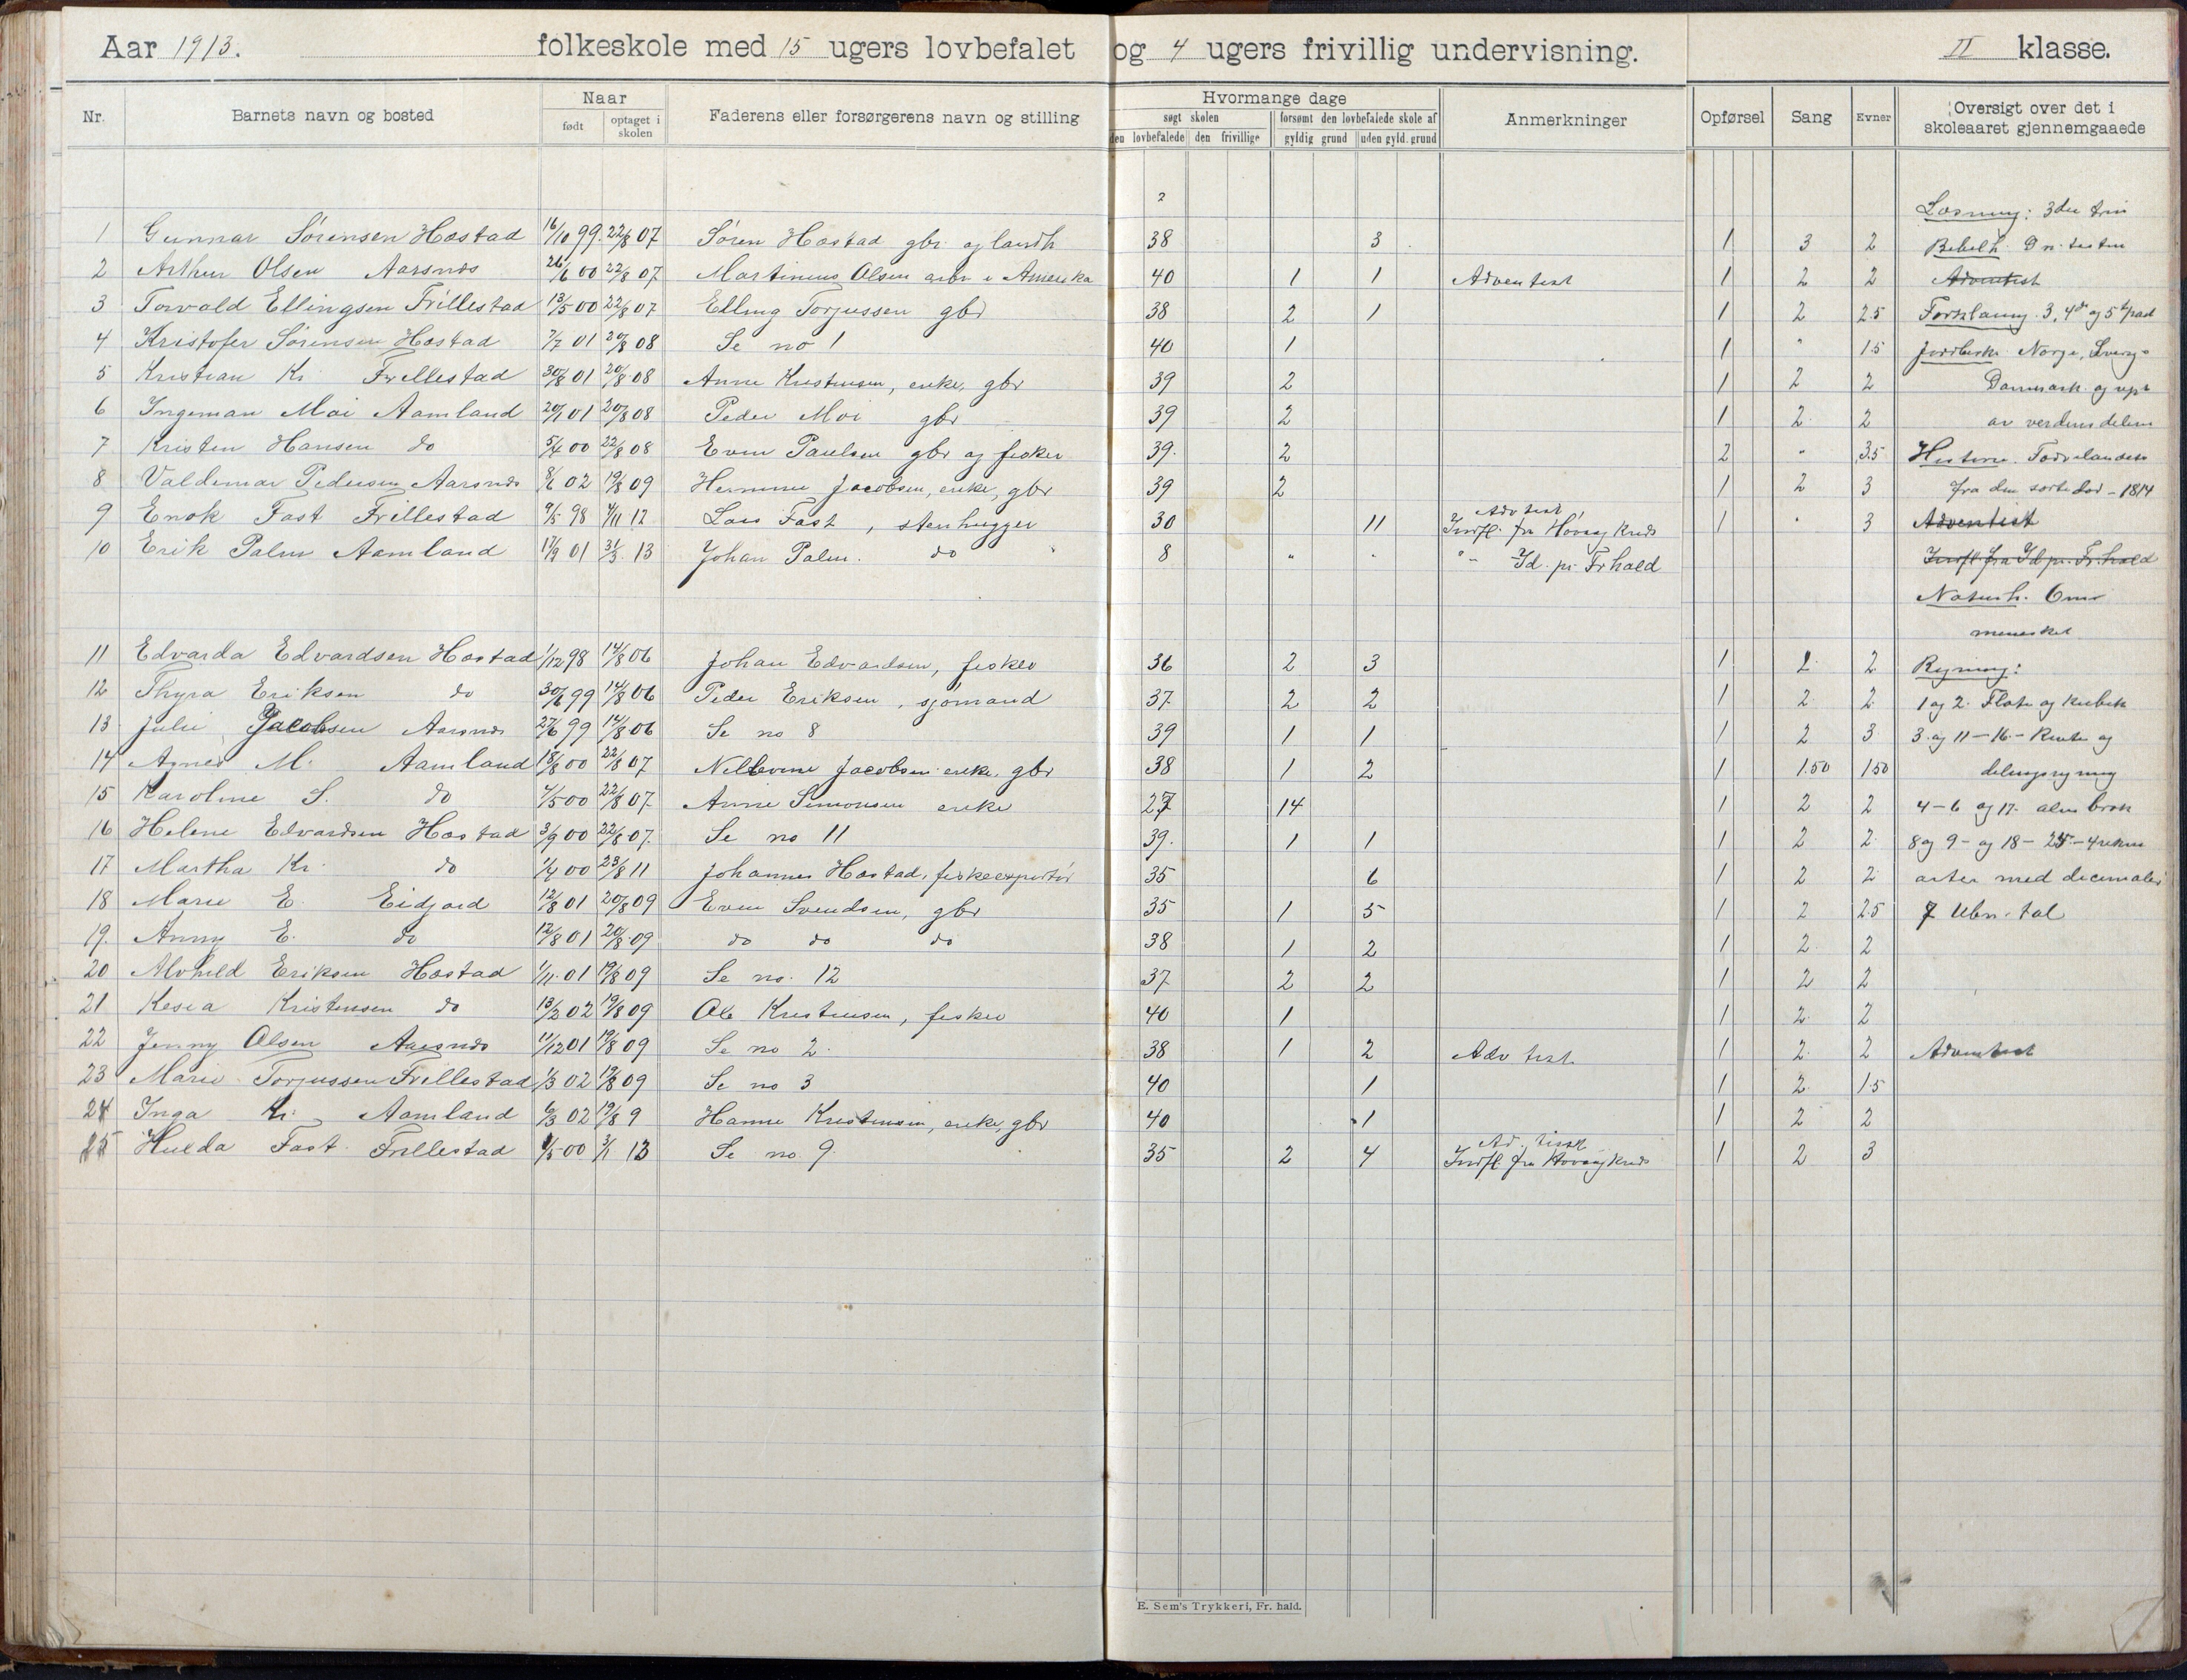 Aar 1913. folkeskole med 15 ugers lovbefalet og 4 ugers frivillig undervisning. II klasse.
Nr. Barnets navn og bosted Naar født optaget i skolen Faderens eller forsørgerens navn og stilling Hvormange dage søgt skolen den lovbefalede den frivillige forsømt den lovbefalede skole af gyldig grund uden gyld. grund Anmerkninger Opførsel Sang Evner Oversigt over det i skoleaaret gjennemgaaede
2
Læsning: 3die trin
1 Gunnar Sørensen Hæstad 16/10 99. 22/8 07 Søren Hæstad gbr. og landh 38 3 1 3 2 Bibelh.
2 Arthur Olsen Aarsnes 26/6 00 22/8 07 Martinius Olsen arb. i Amerika 40 1 1 Adventist 1 2 2 Adventist
3 Torvald Ellingsen Frillestad 13/5 00 22/8 07 Elling Torjussen gbr 38 2 1 1 2 2.5 Forklaring 3, 4de og 5te part
4 Kristofer Sørensen Hæstad 7/7 01 20/8 08 Se no 1 40 1 1 " 1.5 Jordbeskr. Norge, Sverge
5 Kristian Kr. Frillestad 30/8 01 20/8 08 Anne Kristensen, enke, gbr 39 2 1 2 2 Danmark og rept
6 Ingeman Moi Aamland 20/1 01 20/8 08 Peder Moi gbr 39 2 1 2. 2 av verdensdelene
7 Kristen Hansen do 5/4 00 22/8 08 Even Paulsen gbr og fisker 39. 2 2 " 3.5 Historie. Fædrelandets
8 Valdemar Pedersen Aarsnes 8/6 02 19/8 09 Hermine Jacobsen, enke, gbr 39 2 1 2 3 fra den sorte død - 1814
9 Enok Fast Frillestad 9/5 98 4/11 12 Lars Fast, stenhugger 30 11 Adv.tist, Indfl. fra Hovøy Kreds 1 " 3 Adventist
10 Erik Palm Aamland 17/9 01 31/3. 13 Johan Palm. do 8 " " " - Id. pr. Frhald Indfl. fra Id pr. Fr.hald
Naturh. Om
mennesket
11 Edvarda Edvardsen Hæstad 1/12 98 14/8 06 Johan Edvardsen, fisker 36 2 3 1 2. 2 Regning:
12 Thyra Eriksen do 30/6 99 14/8 06 Peder Eriksen, sjømand 37. 2 2 1 2 2. 1 og 2. Flate og kubik
13 Julie Jacobsen Aarsnes 27/6 99 14/8 06 Se no 8 39 1 1 1 2 3 3. og 11 - 16. -
14 Agnes M. Aamland 18/8 00 22/8 07 Nellevine Jacobsen enke, gbr 38 1 2 1 1.50 1.50 delingsregning
15 Karoline S. do 4/5 00 22/8 07. Anne Simonsen enke 27 14 1 2 2 4 - 6 og 17. alm brøk
16 Helene Edvardsen Hæstad 3/9 00 22/8 07. Se no 11 39. 1 1 1 2 2. 8 og 9 - og 18 - 25. - 4 regne
17 Martha Kr. do 1/4 00 23/8 11 Johannes Hæstad, fiskeexportør 35 6 1 2 2 arter med decimaler
18 Marie E. Eidjord 12/8 01 20/8 09 Even Svendsen, gbr 35 1 5 1 2 2.5 7 Ubn. tal
19. Anny E. do 12/8 01 20/8. 09 do do do 38 1 2 1 2. 2
20 Alvhild Eriksen Hæstad 1/11. 01 19/8 09 Se no. 12 37. 2 2 1 2 2
21 Kesia Kristensen do 13/2 02 19/8 09 Ole Kristensen, fisker 40 1 1 2. 2
22 Jenny Olsen Aarsnes 11/12 01 19/8 09 Se no 2. 38 1 2 Adv tist 1 2. 2 Adventist
23 Marie Torjussen Frillestad 1/3 02 19/8 09 Se no 3 40 1 1 2. 1.5
24 Inga Kr. Aamland 6/3 02 19/8 9 Hanne Kristensen, enke, gbr 40 1 1 2 2
25 Hulda Fast. Frillestad 9/5 00 3/1 13 Se no. 9. 35 2 4 Ad. tist Indfl. fra Hovøy Kreds 1 2 3
E. Sem's Trykkeri, Fr. hald.